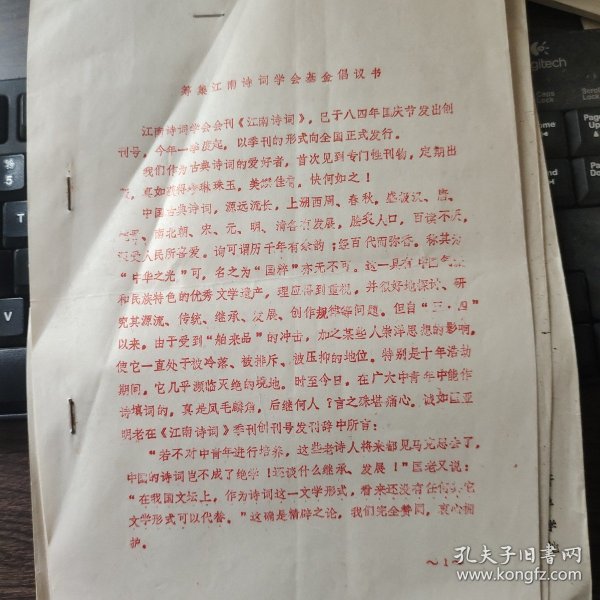 筹集江南诗词学会基金倡议书
江南诗词学会会刊《江南诗词》，已于八四年国庆节发出创
刊号，今年一季度起，以季刊的形式向全国正式发行。
我们作为古典诗词的爱好者，首次见到专门性刊物，定期出
真如获得珍琳珠玉，美馔佳肴，快何如之！
中国古典诗词，源远流长，上溯西周、春秋，盛极汉、唐、
南北朝、宋、元、明、清各有发展，脍炙人口，百读不厌，
受人民所喜爱。询可谓历千年有余韵；经百代而弥香。称其为
“中华之光”可，名之为“国粹”亦无不可。这一具有中国气派
和民族特色的优秀文学遗产，理应得到重视，并很好地探讨、研
究其源流、传统、继承、发展、创作规律等问题。但自“五·四”
以来，由于受到“舶来品”的冲击，加之某些人崇洋思想的影响，
使它一直处于被冷落、被排斥、被压抑的地位。特别是十年浩劫
期间，它几乎濒临灭绝的境地。时至今日，在广大中青年中能作
诗填词的，真是凤毛麟角，后继何人？言之殊堪痛心。诚如匡亚
明老在《江南诗词》季刊创刊号发刊辞中所言：
“若不对中青年进行培养，这些老诗人将来都见马克思去了，
中国的诗词岂不成了绝学！还谈什么继承、发展！”匡老又说：
“在我国文坛上，作为诗词这一文学形式，看来还没有任何其它
文学形式可以代替。”这确是精辟之论，我们完全赞同，衷心拥
护。
～1～
logitech
Caps
Lock
Scroll
Lock
Page
Up
Page
5
孔夫子旧书网
www.kongfz.com